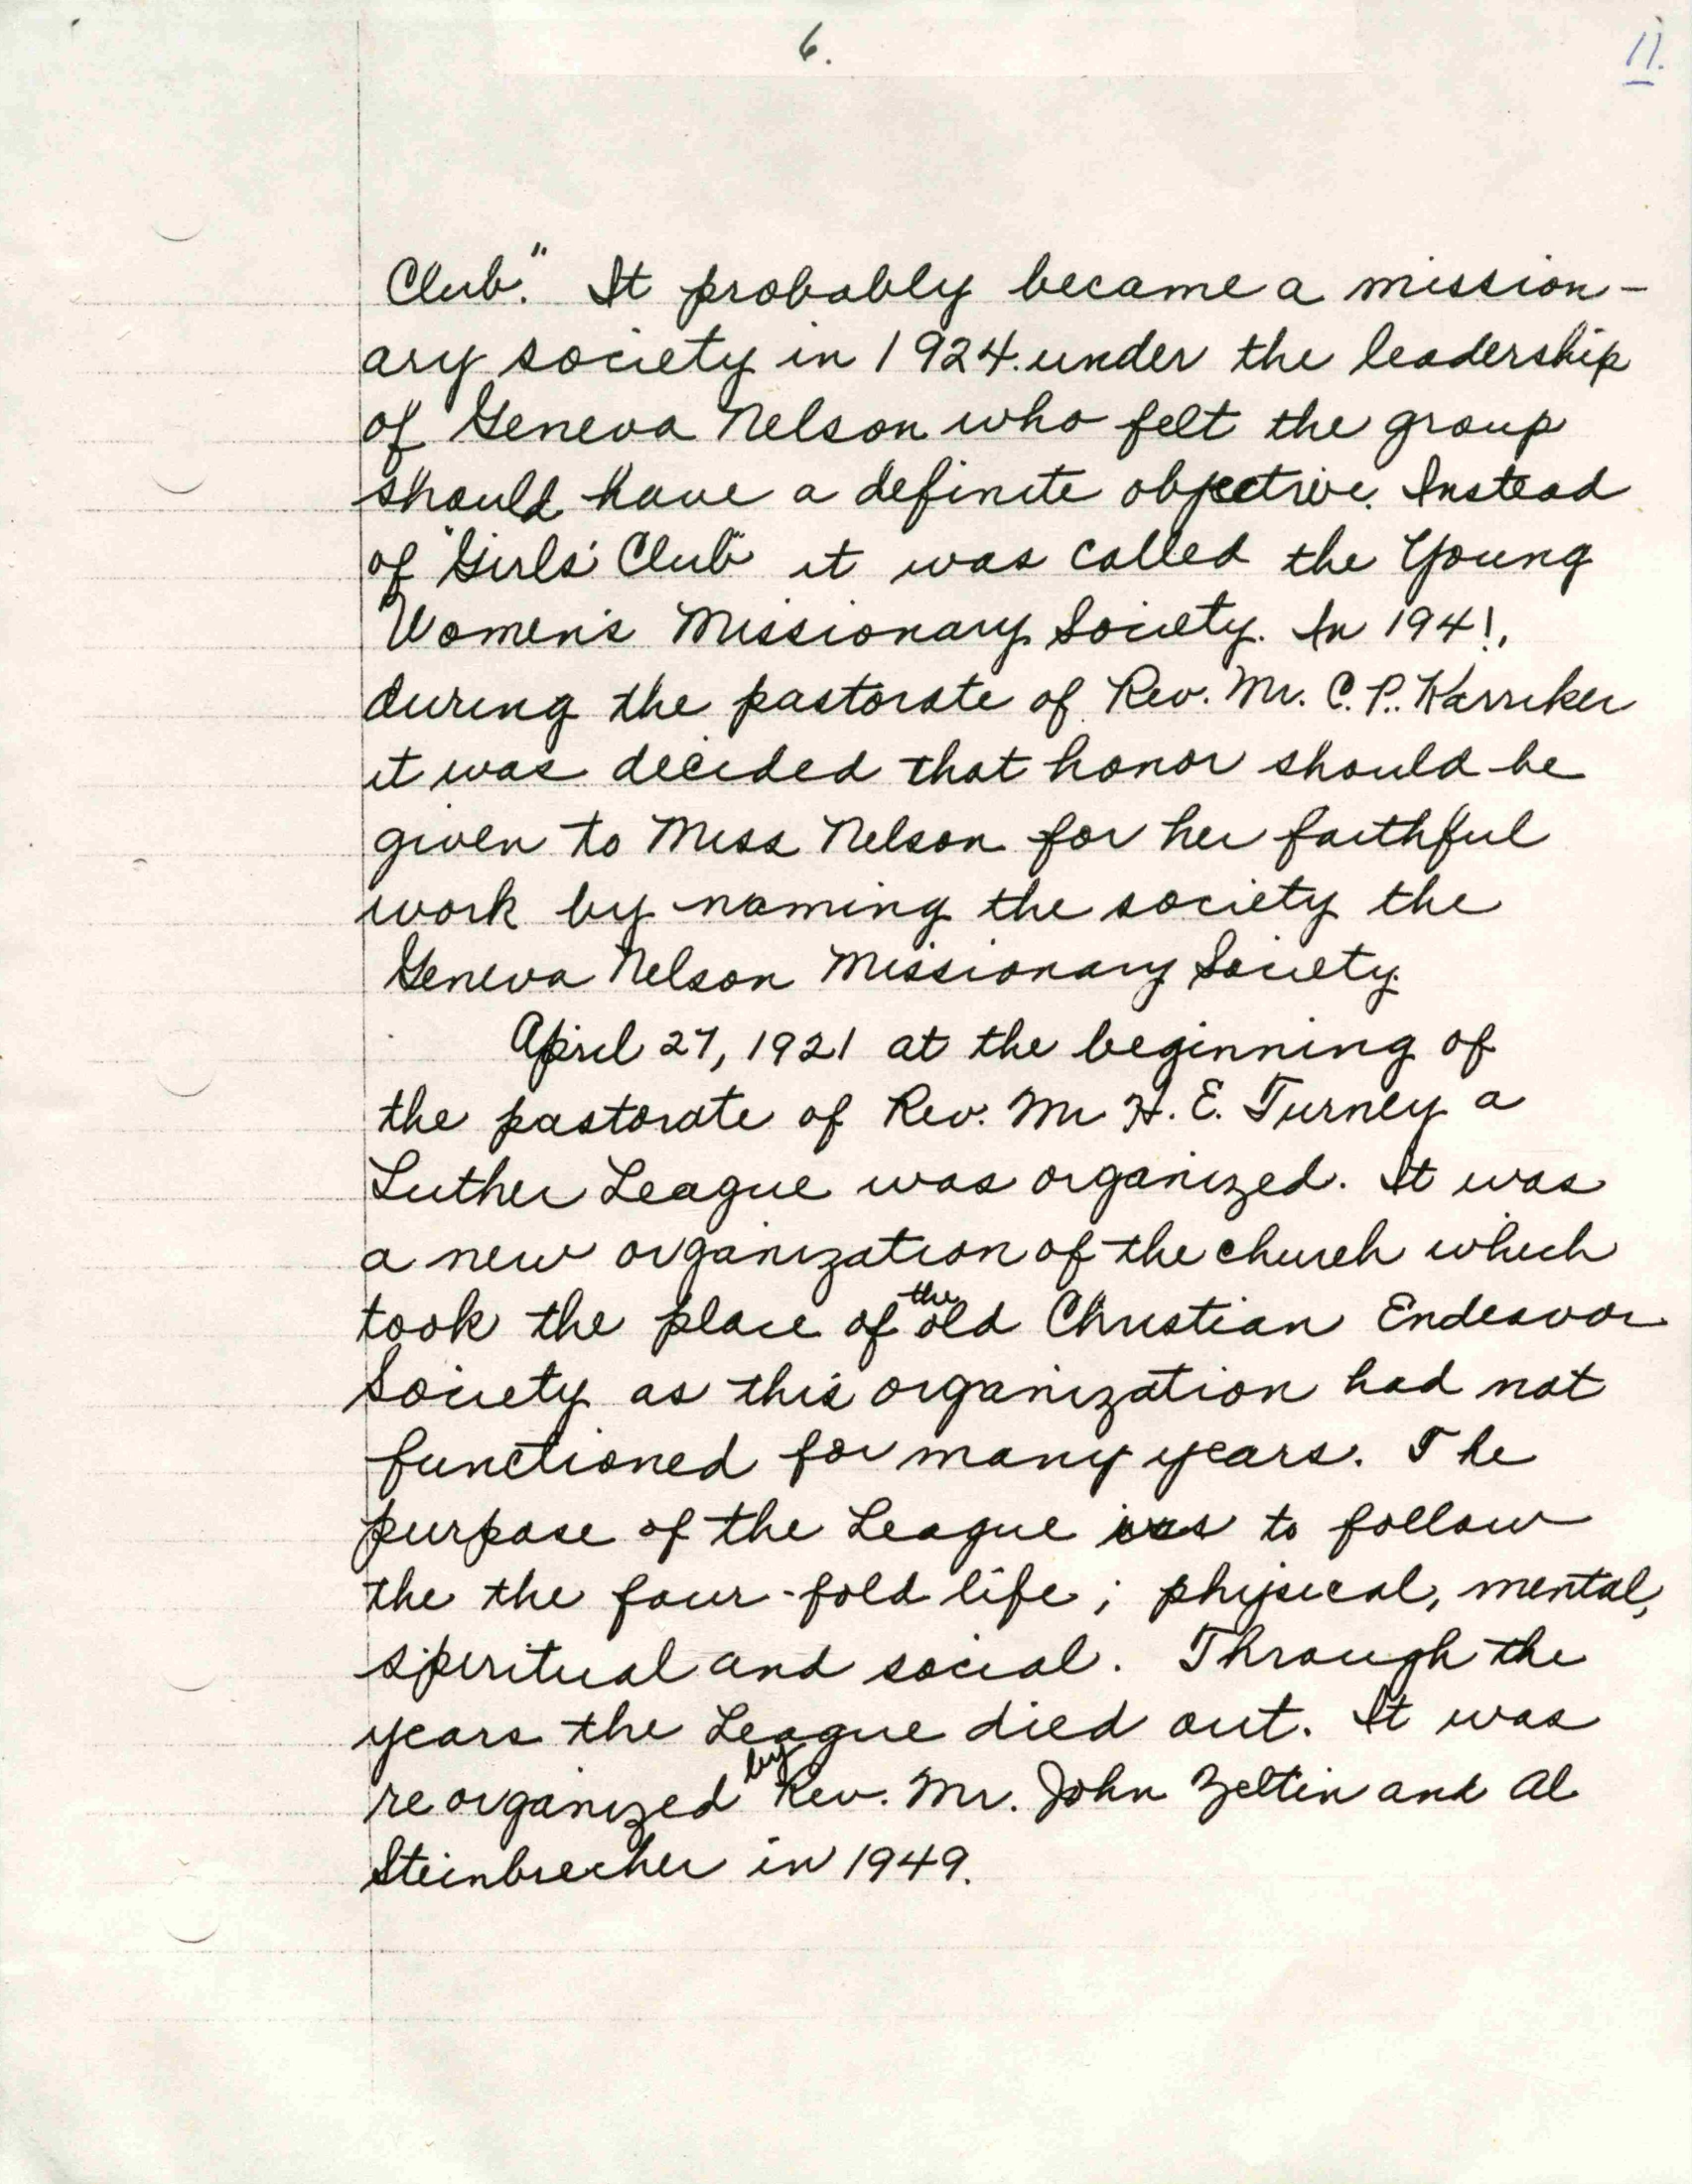 6.
11.
Club." It probably became a mission-
ary society in 1924. under the leadership
of Geneva Nelson who felt the group
should have a definite objective. Instead
of "Girls' Club" it was called the Young
Women's Missionary Society. In 1941,
during the pastorate of Rev. Mr. C. P. Harriker
it was decided that honor should be
given to Miss Nelson for her faithful
work by naming the society the
Geneva Nelson Missionary Society.
April 27, 1921 at the beginning of
the pastorate of Rev. Mr H. E. Turney a
Luther League was organized. It was
a new organization of the church which
took the place of the old Christian Endeavor
Society as this organization had not
functioned for many years. The
purpose of the League was to follow
the the four-fold life; physical, mental,
spiritual and social. Through the
years the League died out. It was
reorganized by Rev. Mr. John Zeltin and Al
Steinbrecher in 1949.